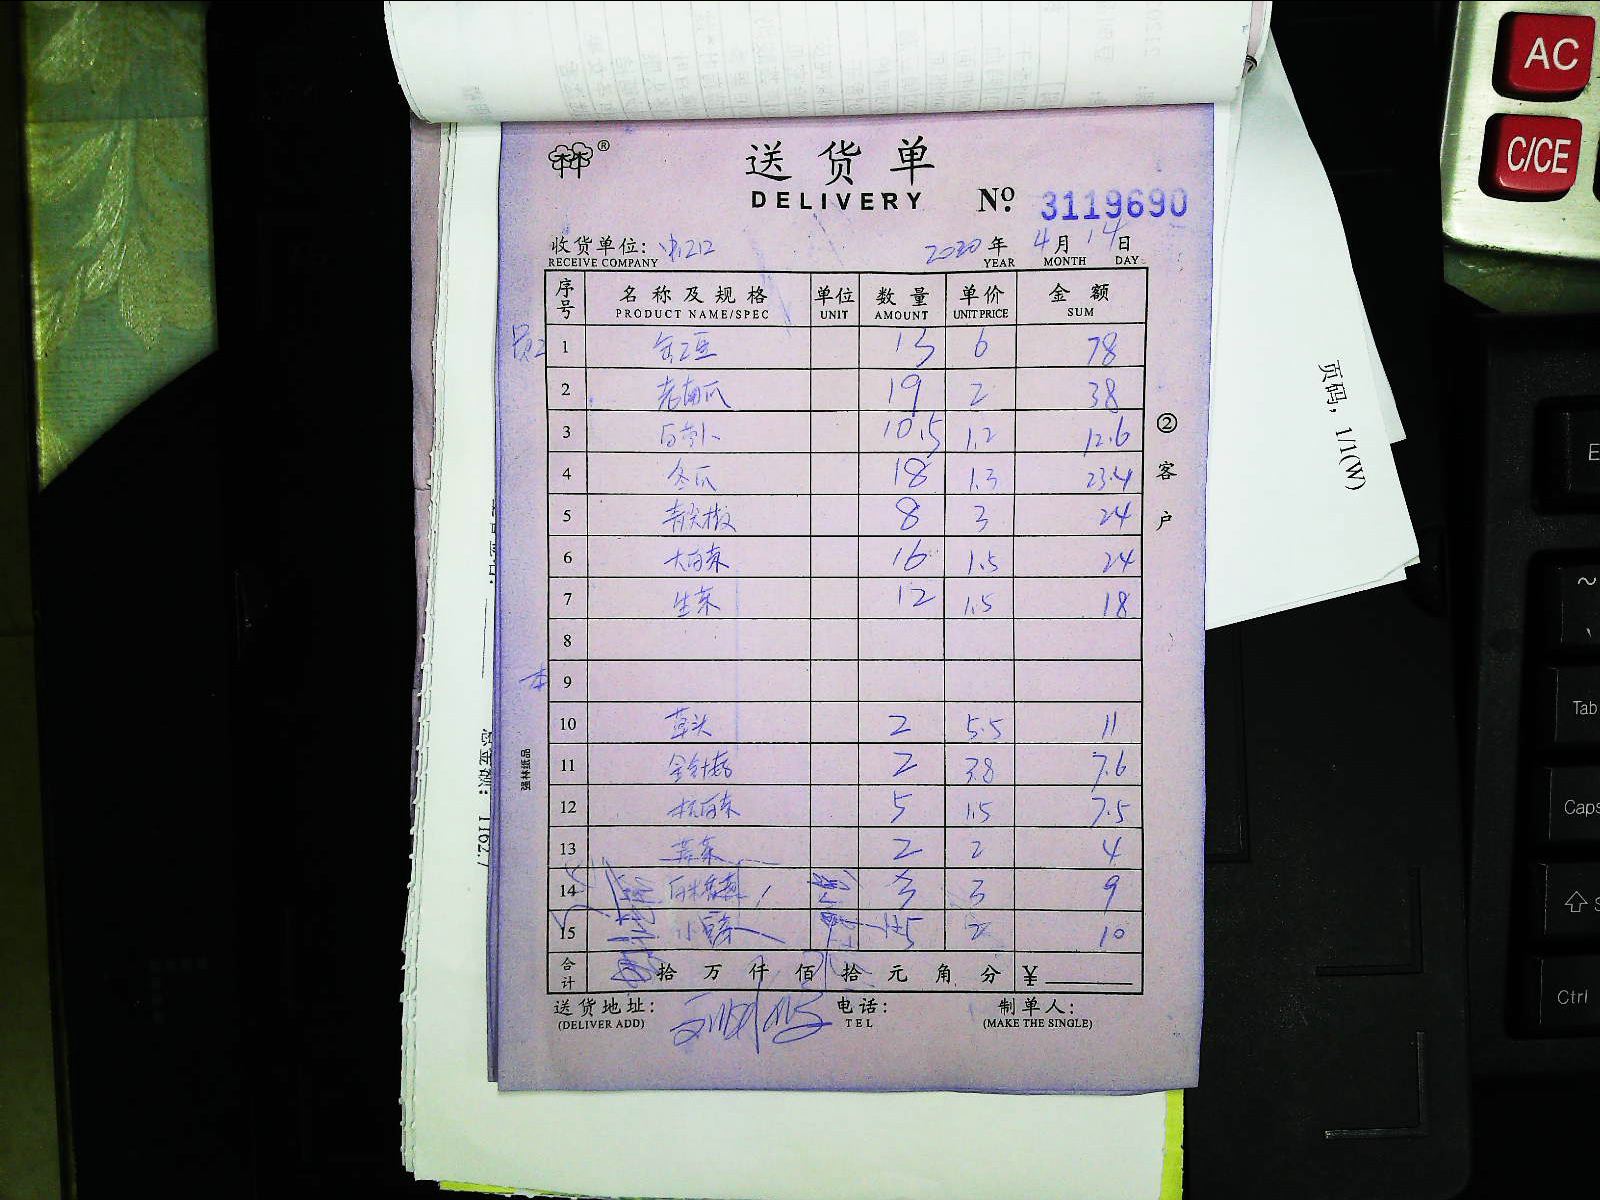 送货单
DELIVERY
№ 3119690
收货单位: 2020年4月14日
RECEIVE COMPANY YEAR MONTH DAY
序号 名称及规格 单位 数量 单价 金额
PRODUCT NAME/SPEC UNIT AMOUNT UNIT PRICE SUM
1 13 6 78
2 老南瓜 19 2 38
3 白萝卜 10.5 1.2 12.6
4 冬瓜 18 1.3 23.4
5 青尖椒 8 3 24
6 大白菜 16 1.5 24
7 生菜 12 1.5 18
8
9
10 草头 2 5.5 11
11 金针菇 2 3.8 7.6
12 杭白菜 5 1.5 7.5
13 2 2 4
14 3 3 9
15 5 2 10
合计 拾万仟佰拾元角分 ¥
送货地址: 电话: 制单人:
(DELIVER ADD) TEL (MAKE THE SINGLE)
②客户
强林纸品
页码, 1/1(W)
总金额: 1162.7
AC
C/CE
Tab
Caps
Ctrl